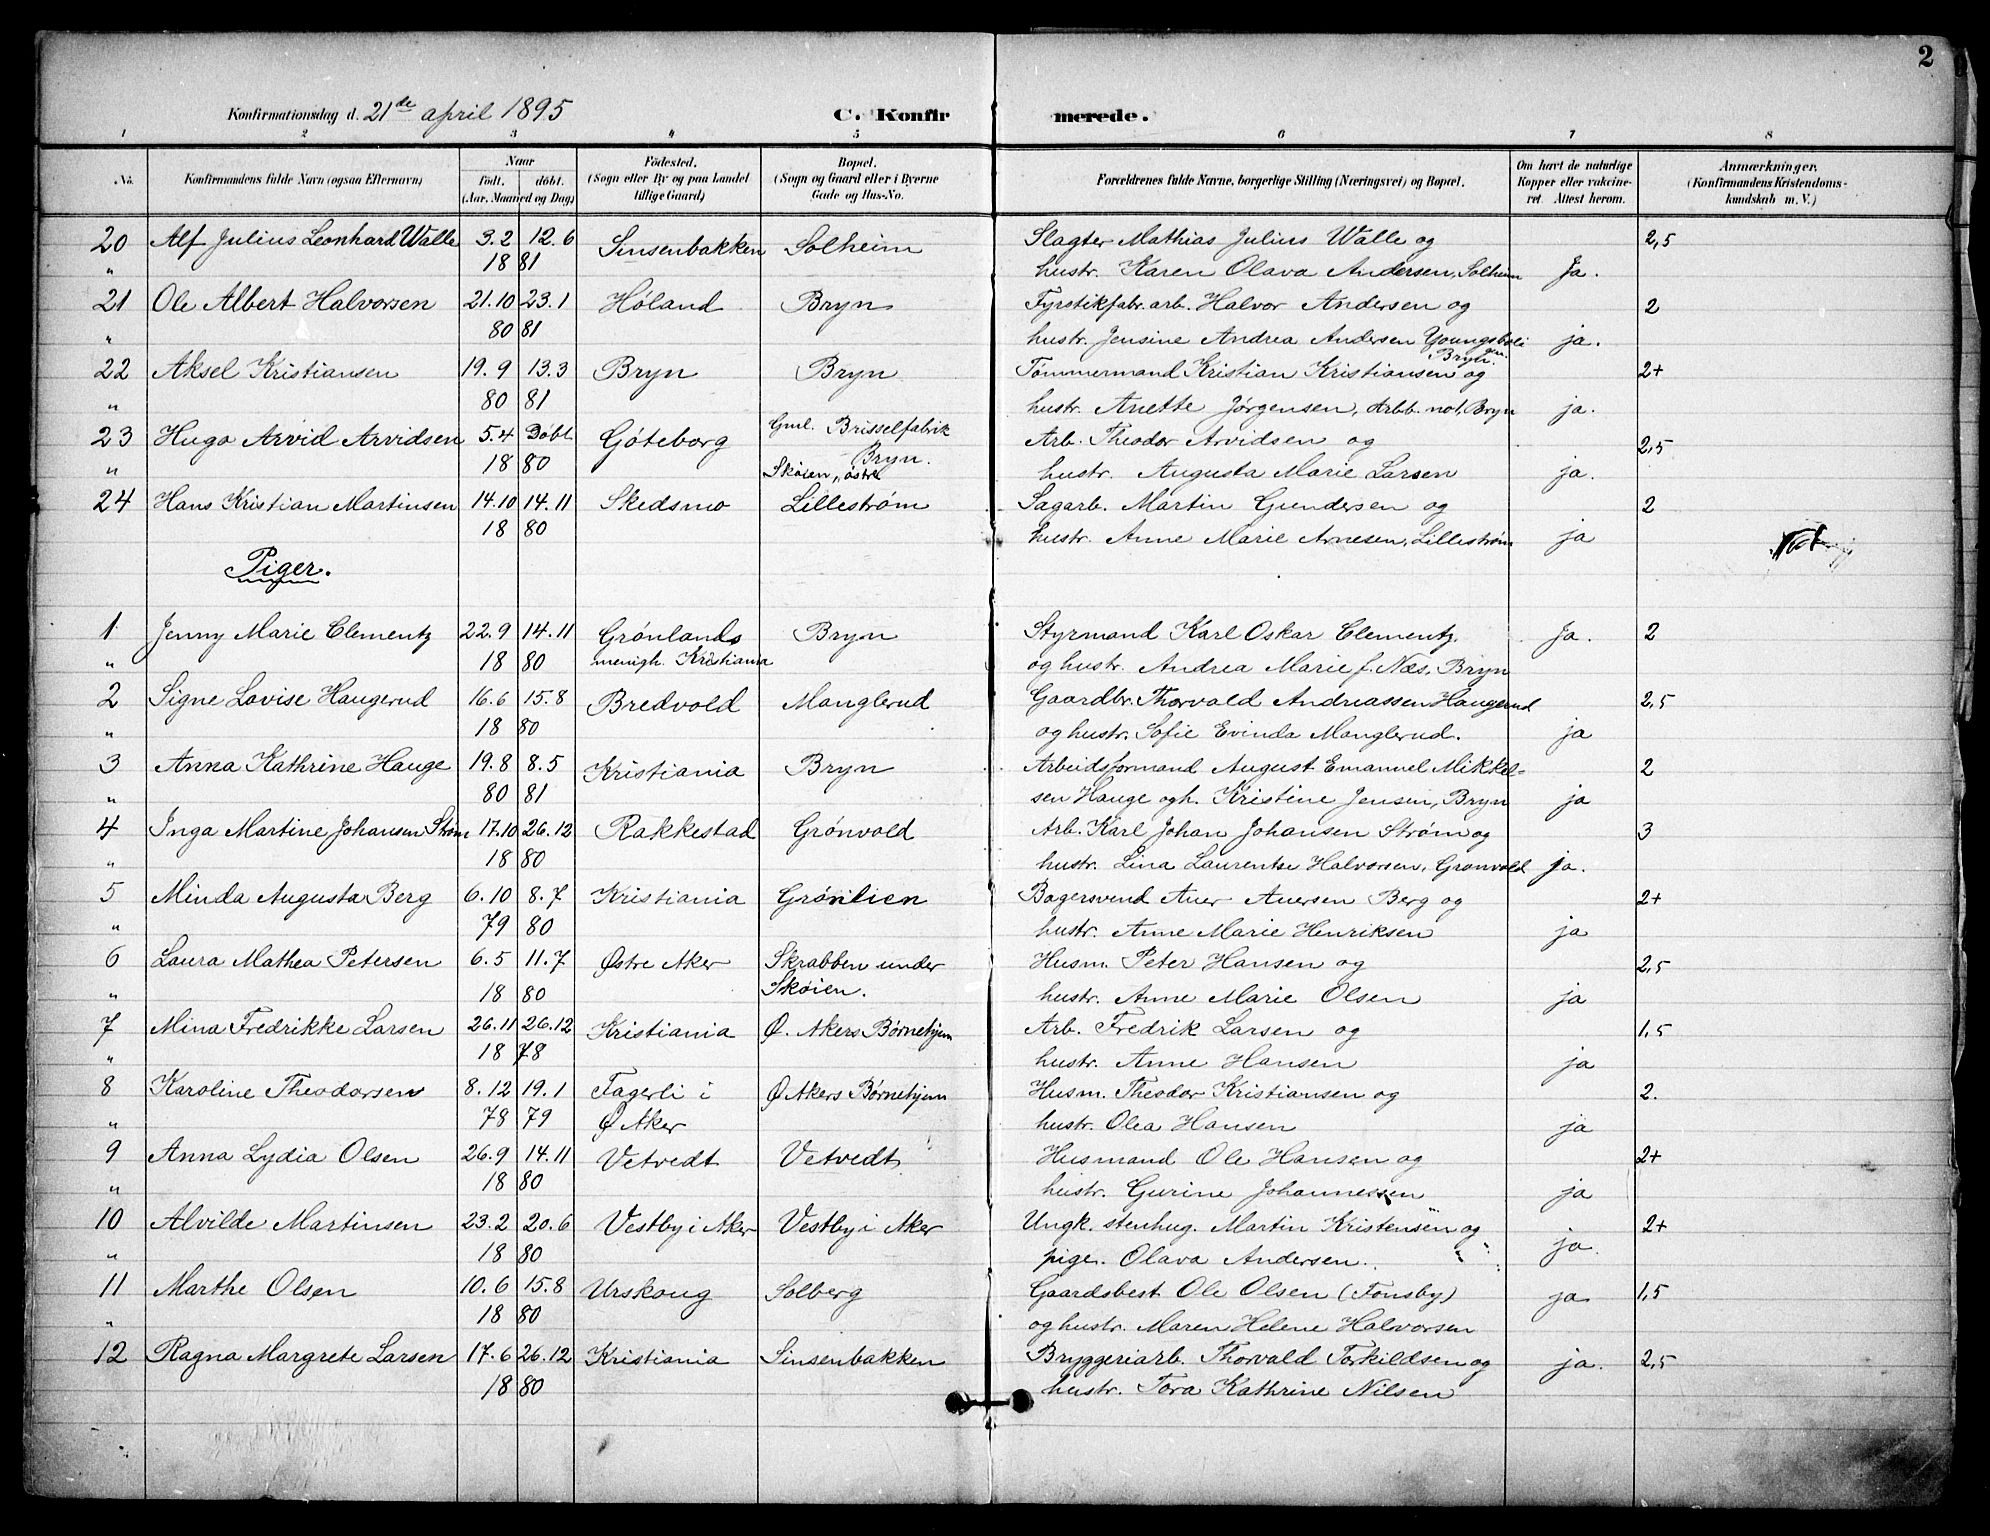 2
Konfirmationsdag d. 21de april 1895
C. Konfir merede.
1 2 3 4 5 6 7 8
No. Konfirmandens fulde Navn (ogsaa Efternavn) Naar Födt. döbt. (Aar, Maaned og Dag) Födested. (Sogn eller By og paa Landet tillige Gaard) Bopæl. (Sogn og Gaard eller i Byerne Gade og Hus-No. Forældrenes fulde Navne, borgerlige Stilling (Næringsvei) og Bopæl. Om havt de naturlige Kopper eller vakcineret. Attest herom. Anmærkninger. (Konfirmandens Kristendomskundskab m. V.)
20 Alf Julius Leonhard Walle 3.2 12.6 Sinsenbakken Solheim Slagter Mathias Julius Walle og 2,5
" 18 81 hustr. Karen Olava Andersen, Solheim Ja.
21 Ole Albert Halvorsen 21.10 23.1 Höland Bryn Fyrstikfabr.arb. Halvor Andersen og 2
" 80 81 hustr. Jensine Andrea Andersen ja.
Bryn.
22 Aksel Kristiansen 19.9 13.3 Bryn Bryn Tømmermand Kristian Kristiansen og 2+
" 80 81 hustr. Anette Jørgensen, Arbb. not, Bryn ja.
23 Hugo Arvid Arvidsen 5.4 Döbt Göteborg Gml. Brisselfabrik Arb. Theodor Arvidsen og 2,5
Bryn.
" 18 80 Skøien, østre hustr. Augusta Marie Larsen ja.
24 Hans Kristian Martinsen 14.10 14.11 Skedsmo Lillestrøm Sagarb. Martin Gundersen og 2
18 80 hustr. Anne Marie Arnesen, Lillestrøm ja
Piger.
1 Jenny Marie Clementz 22.9 14.11 Grønlands Bryn Styrmand Karl Oskar Clementz. Ja. 2
" 18 80 menigh. Kristiania og hustr. Andrea Marie f. Næs, Bryn
2 Signe Lovise Haugerud 16.6 15.8 Bredvold Manglerud Gaardbr. Thorvald Andreassen Haugerud 2,5
" 18 80 og hustr. Sofie Evinda Manglerud. ja
3 Anna Kathrine Hauge 19.8 8.5 Kristiania Bryn Arbeidsformand August Emanuel Mikkel- 2
" 80 81 sen Hauge ogh. Kristine Jensen, Bryn ja
4 Inga Martine Johansen Strøm 17.10 26.12 Rakkestad Grönvold Arb. Karl Johan Johansen Strøm og 3
" 18 80 hustr. Lina Laurentse Halvorsen, Grønvold ja.
5 Minda Augusta Berg 6.10 8.7 Kristiania Grønlien Bagersvend Auer Auersen Berg og 2+
" 79 80 hustr. Anne Marie Henriksen ja
6 Laura Mathea Petersen 6.5 11.7 Østre Aker Skrabben under Husm. Peter Hansen og 2,5
" 18 80 Skøien. hustr. Anne Marie Olsen ja
7 Mina Fredrikke Larsen 26.11 26.12 Kristiania Ø. Akers Børnehjem Arb. Fredrik Larsen og 1,5
" 18 78 hustr. Anne Hansen ja
8 Karoline Theodorsen 8.12 19.1 Fagerli i Ø Akers Børnehjem Husm. Theodor Kristiansen og 2.
" 78 79 Ø Aker hustr. Olea Hansen ja
9 Anna Lydia Olsen 26.9 14.11 Vetvedt Vetvedt Husmand Ole Hansen og 2+
" 18 80 hustr. Gurine Johannessen ja
10 Alvilde Martinsen 23.2 20.6 Vestby i Aker Vestby i Aker Ungk. stenhug. Martin Kristensen og 2+
" 18 80 pige. Olava Andersen. ja.
11 Marthe Olsen 10.6 15.8 Urskoug Solberg Gaardsbest. Ole Olsen (Fonsby) ja 1,5
" 18 80 og hustr. Maren Helene Halvorsen
12 Ragna Margrete Larsen 17.6 26.12 Kristiania Sinsenbakken Bryggeriarb. Thorvald Torkildsen og ja. 2,5
18 80 hustr. Tora Kathrine Nilsen